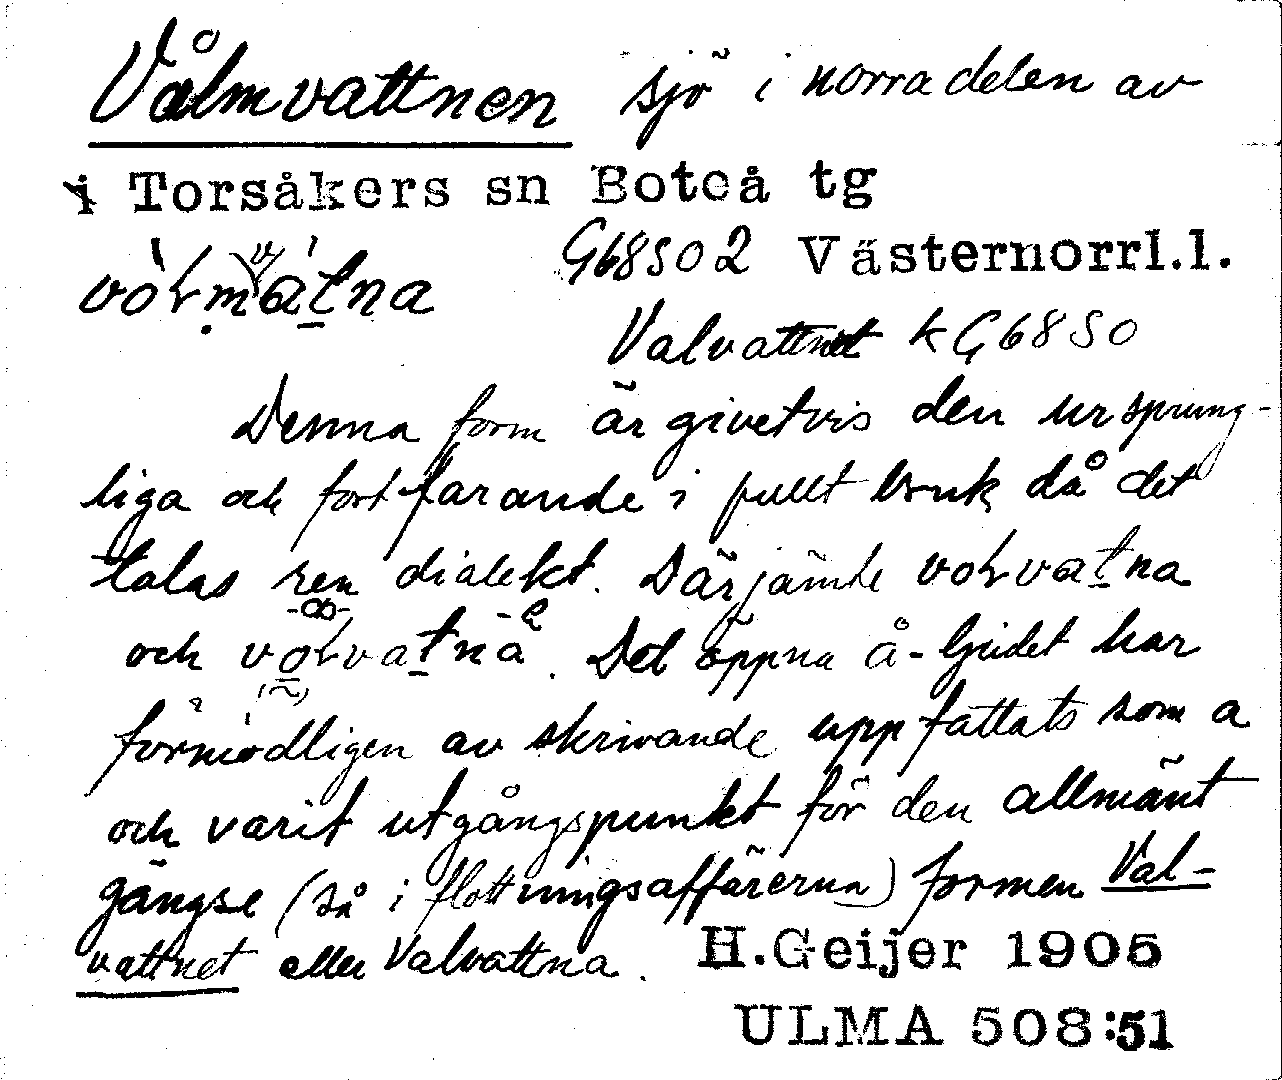 Vålmvattnen sjö i norra delen av
i Torsåkers sn Boteå tg
G68S02 Västernorrl.l.
Valvattnet k G68S0
Denna form är givetvis den ursprung-
liga och fortfarande i fullt bruk då det
talas ren dialekt. Därjämte
och . Det öppna å-ljudet har
förmodligen av skrivande uppfattats som a
och varit utgångspunkt för den allmänt
gängse (så i flottningsaffärerna) formen Val-
vattnet eller Valvattna.
H.Geijer 1905
ULMA 508:51